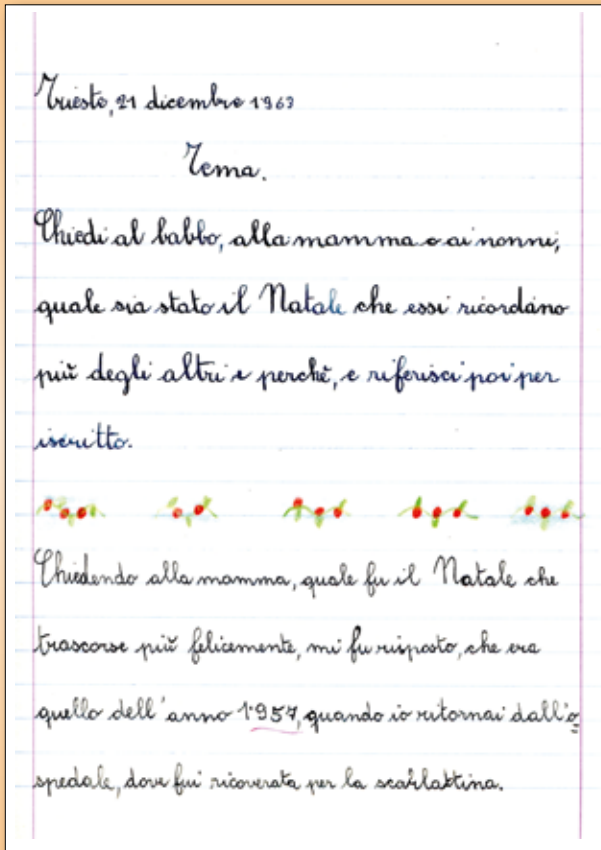 Trieste, 21 dicembre 1963
Tema.
Chiedi al babbo, alla mamma o ai nonni,
quale sia stato il Natale che essi ricordano
più degli altri e perchè, e riferisci poi per
iscritto.
Chiedendo alla mamma, quale fu il Natale che
trascorse più felicemente, mi fu risposto, che era
quello dell'anno 1957, quando io ritornai dall'o
spedale, dove fui ricoverata per la scarlattina.